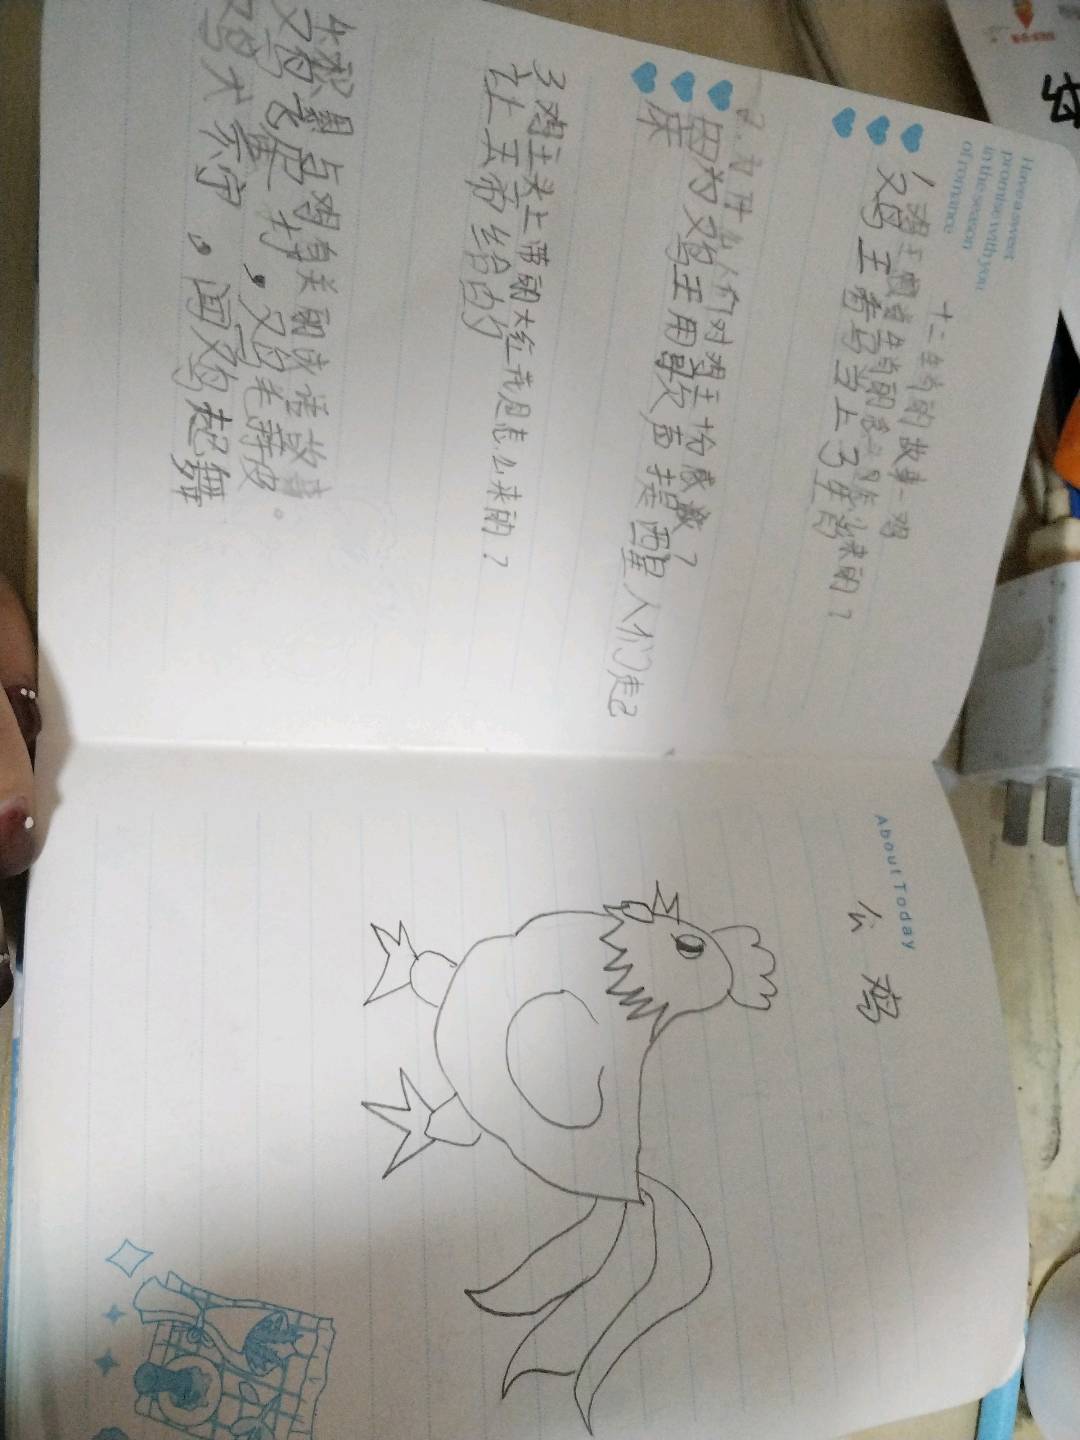 Have a sweet
promise with you
in the season
of romance
十二生肖的故事一鸡
1鸡王假当生肖的念头是怎么来的?
鸡王看马当上了生肖
2.为什么人们对鸡王均感激?
因为鸡王用歌声提醒人们起
床
3鸡王头上带的大红花是怎么来的?
让玉帝给的
4积累与鸡有关的成语故事。
鸡飞蛋打,鸡毛蒜皮
鸡犬不宁,闻鸡起舞
About Today
公鸡